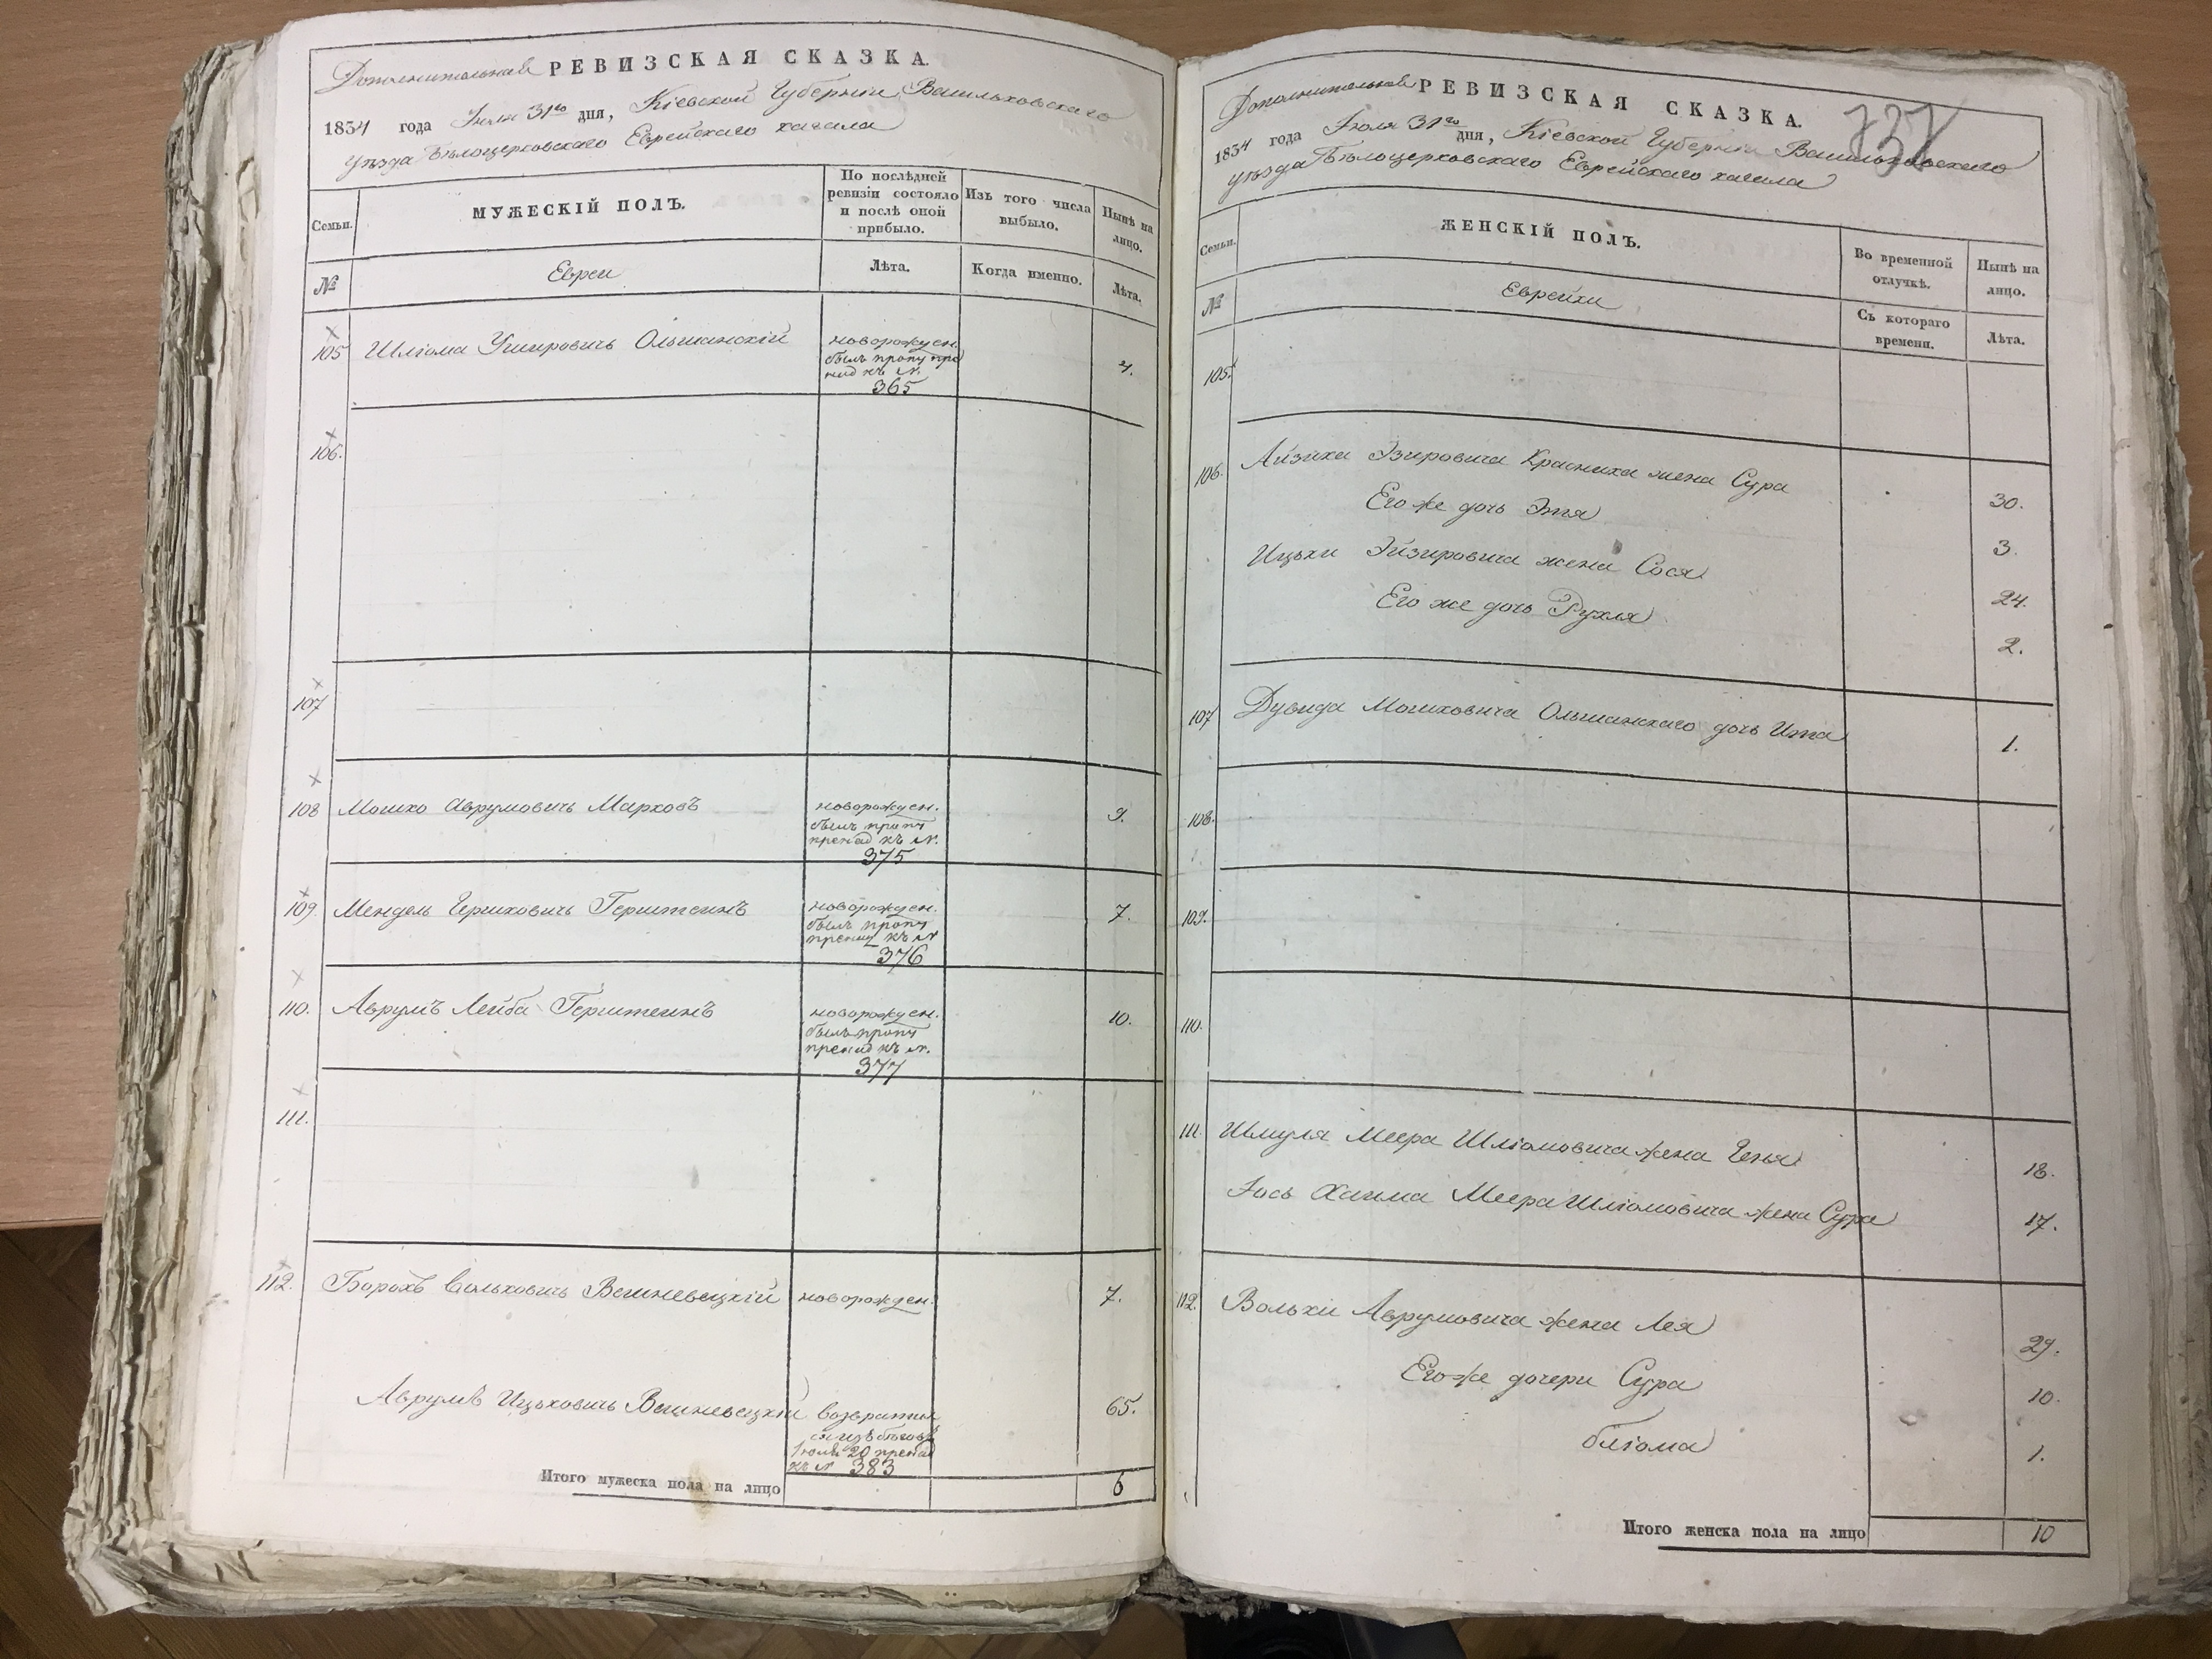 Дополнительная РЕВИЗСКАЯ СКАЗКА.
1834 года Іюля 31го дня, Кіевской Губерніи Васильковскаго
уѣзда Бѣлоцерковскаго Еврейскаго кагала
Семьи.
МУЖЕСКІЙ ПОЛЪ.
По послѣдней
ревизіи состояло
и послѣ оной
прибыло.
Изъ того числа
выбыло.
Нынѣ на
лицо.
№
Евреи
Лѣта.
Когда именно.
Лѣта.
105 Шліома Ушеровичь Ольшанскій новорожден. 4.
былъ пропу
къ №.
365
106.
107
108 Мошко Аврумовичь Марковъ новорожден. 9.
былъ пропу
къ №.
375
109. Мендель Гершковичь Герштеинъ новорожден. 7.
былъ пропу
къ №
376
110. Аврумъ Лейба Герштеинъ новорожден. 10.
былъ пропу
къ №.
377
111.
112. Борохъ Вольковичь Вешневецкій новорожден. 7.
Аврумъ Ицьковичь Вешневецкій возратил 65.
ся изъ бѣговъ
Іюля 20
къ № 383
Итого мужеска пола на лицо 6
Дополнительная РЕВИЗСКАЯ СКАЗКА.
737
1834 года Іюля 31го дня, Кіевской Губерніи Васильковскаго
уѣзда Бѣлоцерковскаго Еврейскаго кагала
Семьи.
ЖЕНСКІЙ ПОЛЪ.
Во временной
отлучкѣ.
Нынѣ на
лицо.
№
Еврейки
Съ котораго
времени.
Лѣта.
105.
106. Айзика Эзировича Красника жена Сура 30.
Его же дочь Этя 3.
Ицьки Эйзировича жена Сося 24.
Его же дочь Рухля 2.
107 Дувида Мошковича Ольшанскаго дочь Ита 1.
108.
109.
110.
111. Шмуля Меера Шліомовича жена Геня 18.
Іось Хаима Меера Шліомовича жена Сура 17.
112. Вольки Аврумовича жена Лея 29.
Его же дочери Сура 10.
бліома 1.
Итого женска пола на лицо 10